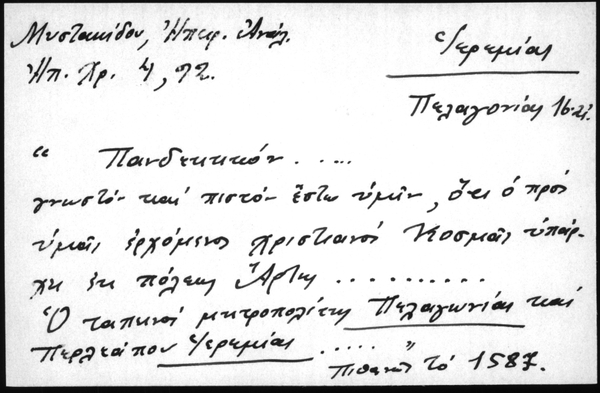 Μυστακίδου, Ἠπειρ. Ἀνάλ.
Ἠπ. Χρ. 4, 92.
Ἱερεμίας
Πελαγονίας 16
" Πανδεκτικόν . . . . .
γνωστόν καί πιστόν ἔστω ὑμῖν, ὅτι ὁ πρός
ὑμᾶς ἐρχόμενος χριστιανός Κοσμᾶς ὑπάρ-
χει ἐκ πόλεως Ἄρτης . . . . . . . . . .
Ὁ ταπεινός μητροπολίτης Πελαγωνίας καί
Περλεάπου Ἱερεμίας . . . . . "
Πιθανῶς τό 1587.